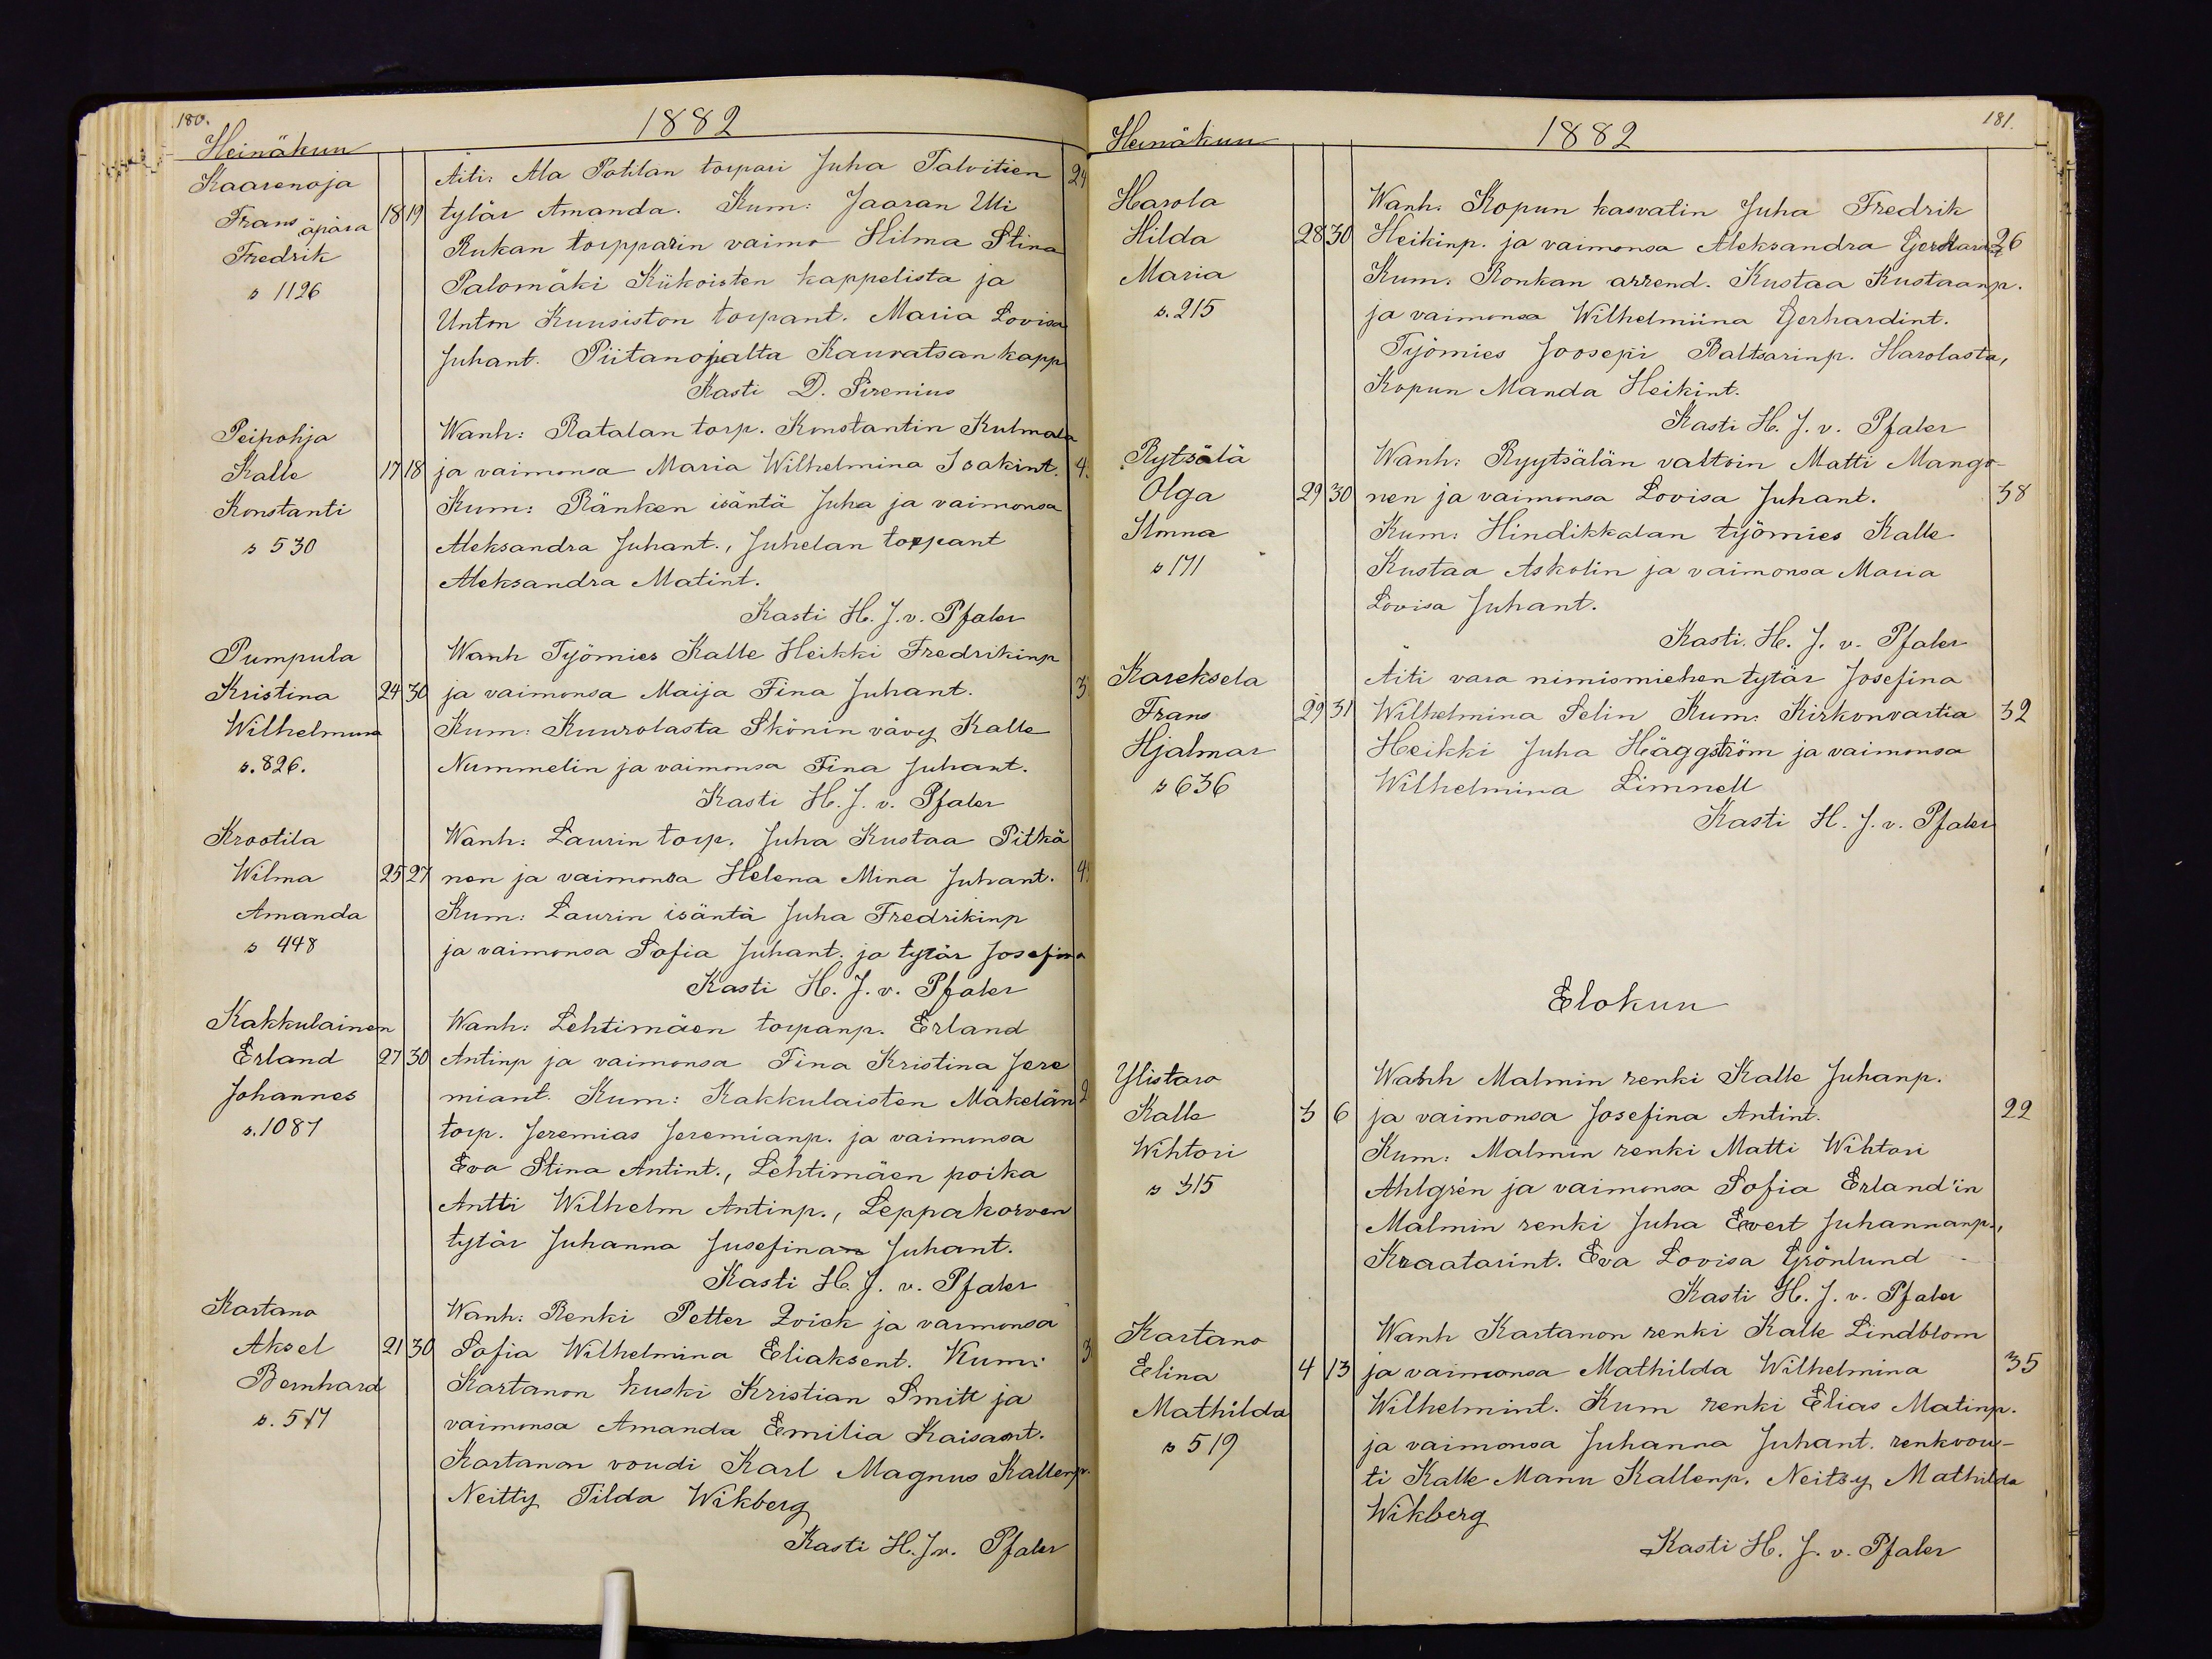 180.
1882
Heinäkun
Kaarenoja
Frans äpärä
Fredrik
s 1126
18 19
Äiti: Ala Potilan torpari Juha Talvitien 24
tytär Amanda. Kum: Jaaran Uli
Rukan torpparin vaimo Hilma Stina
Palomäki Kiikoisten kappelista ja
Unton Kuusiston torpant. Maria Lovisa
Juhant. Piitanojalta Kauvatsan kapp
Kasti D. Sirenius
Peipohja
Kalle
Konstanti
s 530
17 18
Wanh: Ratalan torp. Konstantin Kulmala
ja vaimonsa Maria Wilhelmina Isakint. 4
Kum: Ränken isäntä Juha ja vaimonsa
Aleksandra Juhant., Juhelan torpant
Aleksandra Matint.
Kasti H. J. v. Pfaler
Pumpula
Kristina
Wilhelmina
s. 826.
24 30
Wanh Työmies Kalle Heikki Fredrikinp
ja vaimonsa Maija Fina Juhant. 3
Kum: Kuurolasta Skönin vävy Kalle
Nummelin ja vaimonsa Fina Juhant.
Kasti H. J. v. Pfaler
Krootila
Wilma
Amanda
s 448
25 27
Wanh: Laurin torp. Juha Kustaa Pitkä
nen ja vaimonsa Helena Mina Juhant. 4
Kum: Laurin isäntä Juha Fredrikinp
ja vaimonsa Sofia Juhant. ja tytär Josefina
Kasti H. J. v. Pfaler
Kakkulainen
Erland
Johannes
s. 1087
27 30
Wanh: Lehtimäen torpanp. Erland
Antinp ja vaimonsa Fina Kristina Jere
miant. Kum: Kakkulaisten Mäkelän 2
torp. Jeremias Jeremianp. ja vaimonsa
Eva Stina Antint., Lehtimäen poika
Antti Wilhelm Antinp., Leppäkorven
tytär Juhanna Jusefina Juhant.
Kasti H. J. v. Pfaler
Kartano
Aksel
Bernhard
s. 517
21 30
Wanh: Renki Petter Qvick ja vaimonsa
Sofia Wilhelmina Eliaksent. Kum: 3
Kartanon kuski Kristian Smitt ja
vaimonsa Amanda Emilia Kaisant.
Kartanon voudi Karl Magnus Kallenp.
Neitty Tilda Wikberg
Kasti H. J. v. Pfaler
181.
1882
Heinäkun
Harola
Hilda
Maria
s. 215
28 30
Wanh. Kopun kasvatin Juha Fredrik
Heikinp. ja vaimonsa Aleksandra Gerhard 26
Kum. Ronkan arrend. Kustaa Kustaanp.
ja vaimonsa Wilhelmiina Gerhardint.
Työmies Joosepi Baltsarinp. Harolasta,
Kopun Manda Heikint.
Kasti H. J. v. Pfaler
Rytsälä
Olga
Ilmna
s 171
29 30
Wanh: Ryytsälän valtoin Matti Mango-
nen ja vaimonsa Lovisa Juhant. 38
Kum: Hindikkalan työmies Kalle
Kustaa Askolin ja vaimonsa Maria
Lovisa Juhant.
Kasti. H. J. v. Pfaler
Kareksela
Frans
Hjalmar
s 636
29 31
Äiti vara nimismiehen tytär Josefina
Wilhelmina Selin Kum: Kirkonvartia 32
Heikki Juha Häggström ja vaimonsa
Wilhelmina Limnell
Kasti H. J. v. Pfaler
Elokun
Ylistaro
Kalle
Wihtori
s 315
3 6
Wanh Malmin renki Kalle Juhanp.
ja vaimonsa Josefina Antint. 22
Kum: Malmin renki Matti Wihtori
Ahlgrén ja vaimonsa Sofia Erland'in
Malmin renki Juha Evert Juhannanp.,
Kraatarint. Eva Lovisa Grönlund
Kasti H. J. v. Pfaler
Kartano
Elina
Mathilda
s 519
4 13
Wanh Kartanon renki Kalle Lindblom
ja vaimonsa Mathilda Wilhelmina 35
Wilhelmint. Kum renki Elias Matinp.
ja vaimonsa Juhanna Juhant. renkvou-
ti Kalle Manu Kallenp. Neitsy Mathilda
Wikberg
Kasti H. J. v. Pfaler